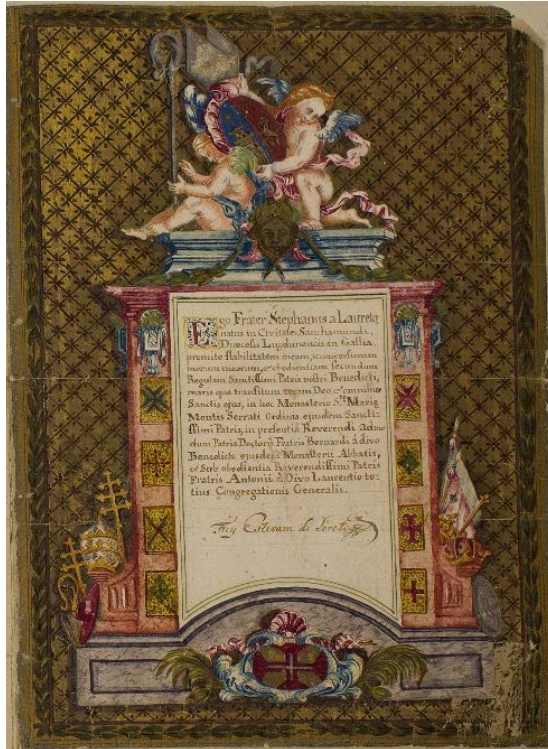 Ego Frater Stephanus a Laureto,
natus in Civitate Sanchamundi,
Diœcesis Lugdunencis in Gallia,
promito stabilitatem meam, & conversionem
morum meorum, & obedientiam secundum
Regulam Sanctissimi Patris nostri Benedicti,
maris que transitum coram Deo & omnibus
Sanctis ejus, in hoc Monasterio Stæ Mariæ
Montis Serrati Ordinis ejusdem Sancti-
ssimi Patris, in presentiâ Reverendi Admo
dum Patris Doctoris Fratris Bernardi à divo
Benedicto ejusdem Monasterii Abbatis,
& Sub obedientia Reverendissimi Patris
Fratris Antonii à Divo Laurentio to-
tius Congregationis Generalis.
Frey Estevam do Loreto